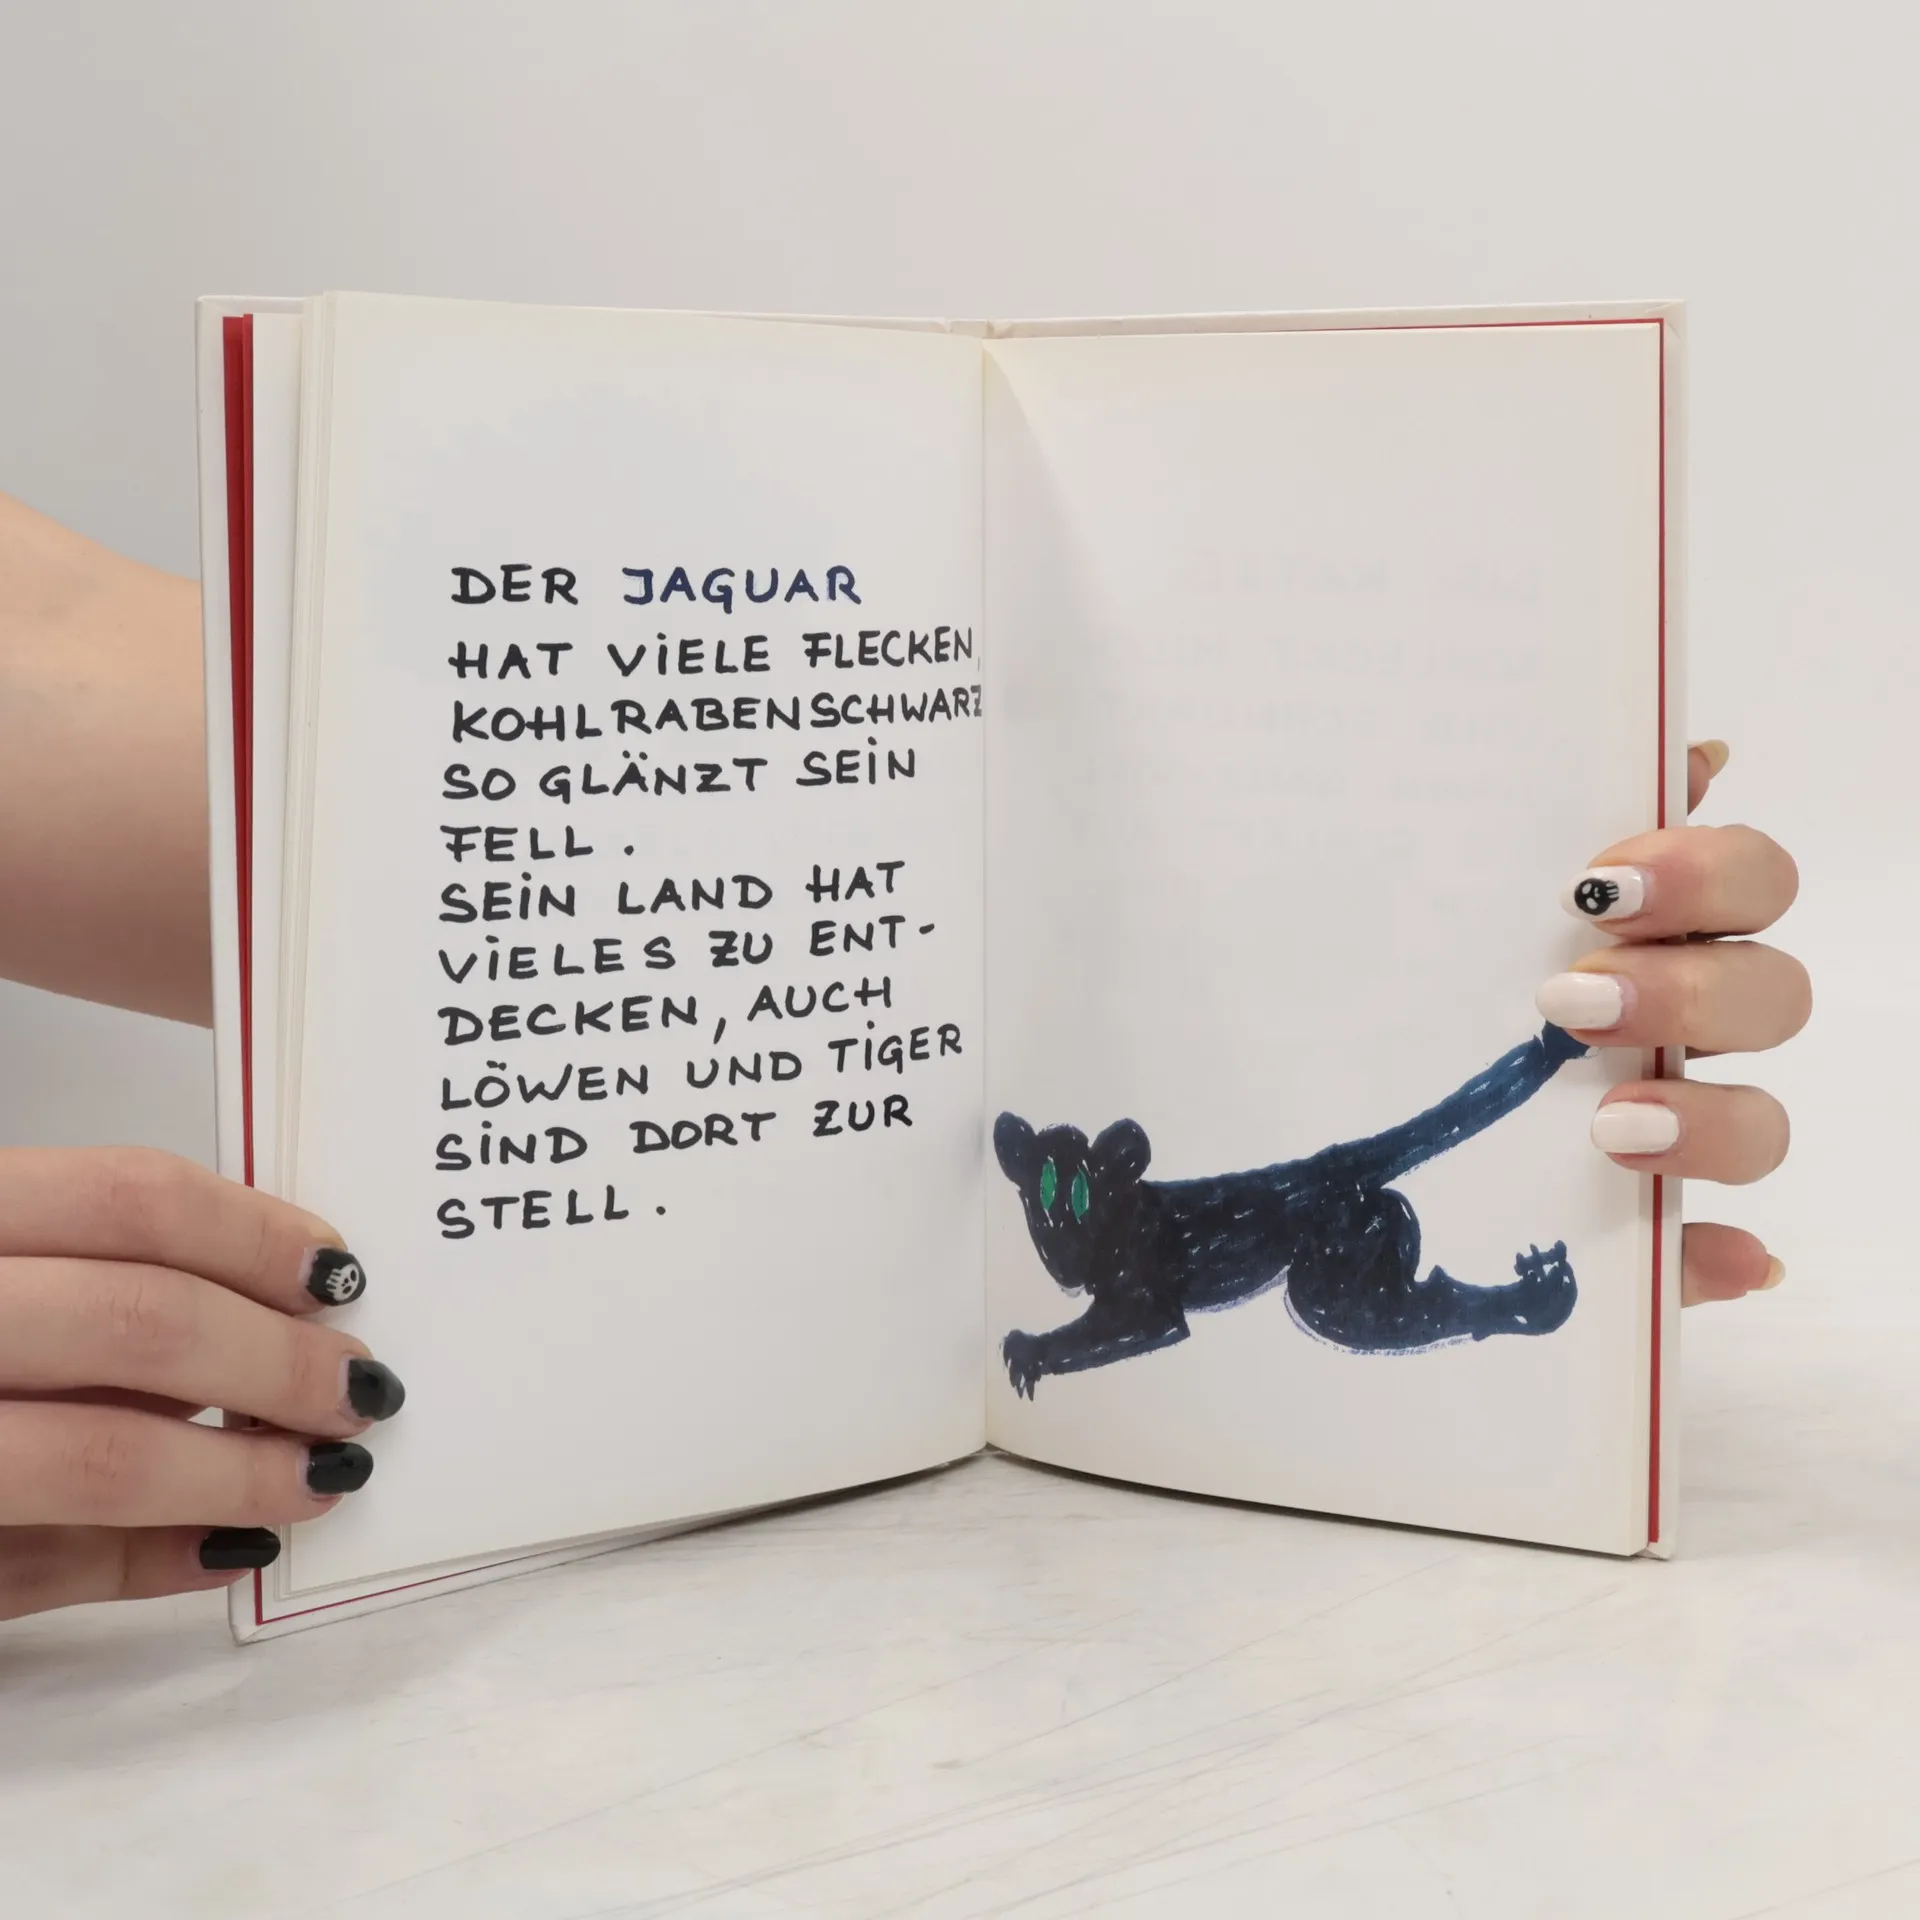 DER JAGUAR
HAT ViELE FLECKEN,
KOHLRABENSCHWARZ
SO GLÄNZT SEiN
FELL .
SEiN LAND HAT
ViELES ZU ENT-
DECKEN, AUCH
LÖWEN UND TiGER
SiND DORT ZUR
STELL .